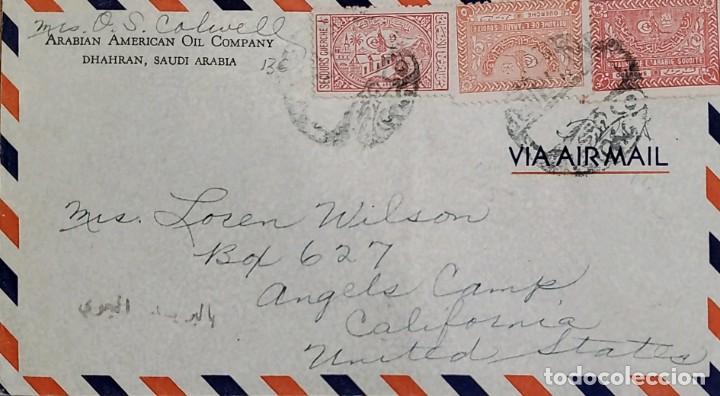 Mrs. O. S. Colwell
ARABIAN AMERICAN OIL COMPANY
DHAHRAN, SAUDI ARABIA
136
SECOURS GUERCHE
GUERCHE
VIA AIR MAIL
Mrs. Loren Wilson
Box 627
Angels Camp
California
United States
todocoleccion